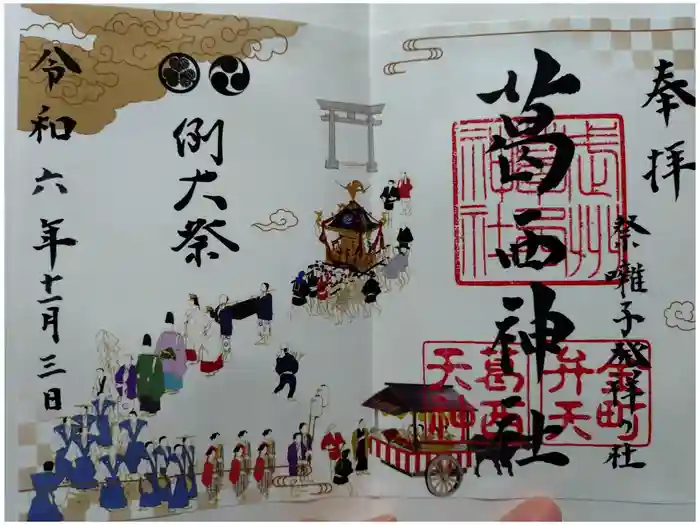 奉拝
祭囃子発祥の社
葛西神社
武州
神社
金町
弁天
葛西
天神
例大祭
令和六年十一月三日